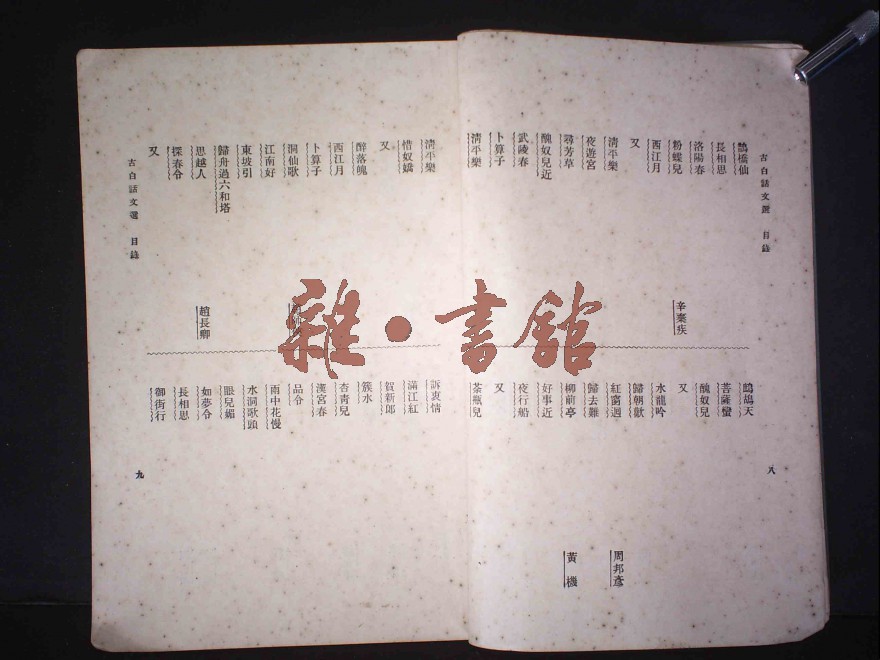 古白話文選　目錄
鵲橋仙
長相思
洛陽春
粉蝶兒
西江月
又
清平樂
夜遊宮
尋芳草
醜奴兒近
武陵春
卜算子
清平樂
辛棄疾
鷓鴣天
菩薩蠻
醜奴兒
又
水龍吟
歸朝歡
紅窗迥
歸去難
柳前亭
好事近
夜行船
又
茶瓶兒
周邦彥
黃機
八
清平樂
惜奴嬌
又
醉落魄
西江月
卜算子
洞仙歌
江南好
東坡引
歸舟過六和塔
思越人
探春令
又
古白話文選　目錄
趙長卿
訴衷情
滿江紅
賀新郎
簇水
杏青兒
漢宮春
品令
雨中花慢
水調歌頭
眼兒媚
如夢令
長相思
御街行
九
雜·書館